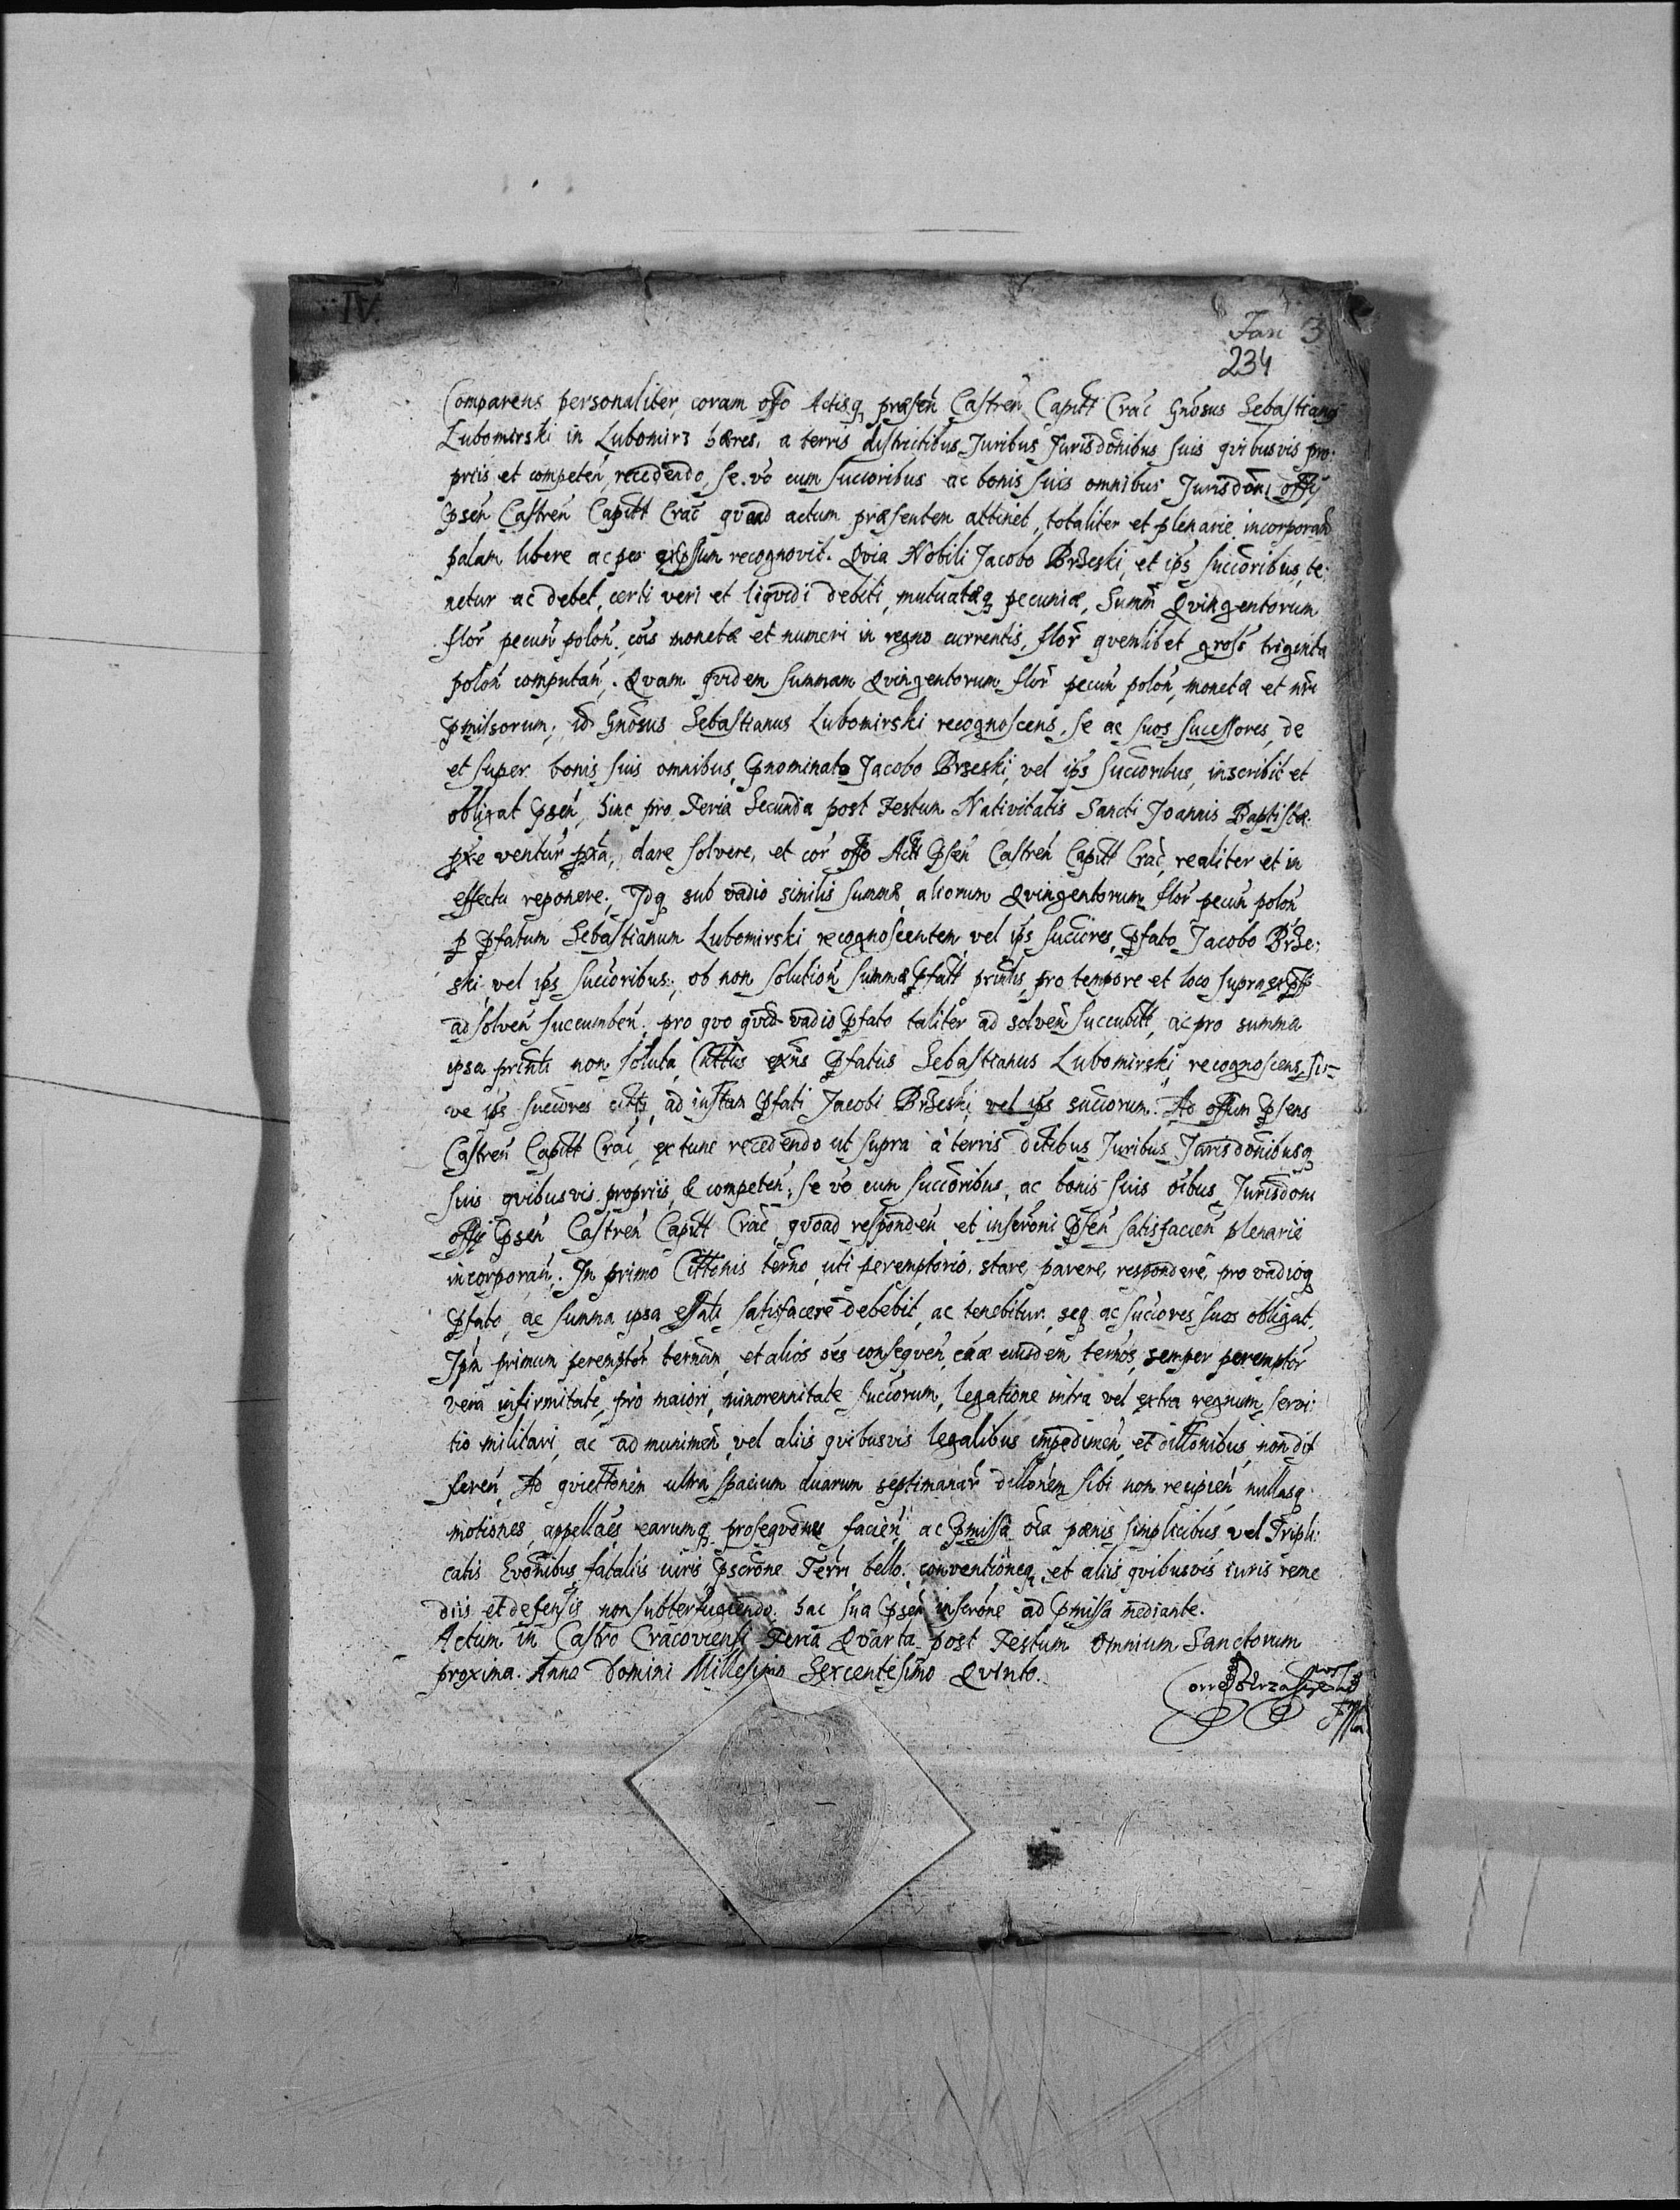 IV.
Fasc 3
234
Comparens personaliter coram offo Actisq præsen Castren Capitt Crac Gnosus Sebastianus
Lubomirski in Lubomirz hæres, a terris districtibus Juribus Jurisdonibus suis qvibusvis pro-
priis et competen, recedendo, se vo cum succoribus ac bonis suis omnibus Jurisdoni offij
psen Castren Capitt Crac qvoad actum præsentem attinet, totaliter et plenarie incorporan
palam libere ac per expssum recognovit. Qvia Nobili Jacobo Brzeski, et ips succoribus, te-
netur ac debet, certi veri et liqvidi debiti, mutuatæq pecuniæ, Summ Qvingentorum
flor pecun polon, cois monetæ et numeri in regno currentis, flor qvemlibet gross triginta
polon computan. Qvam qvidem summam Qvingentorum flor pecun polon, monetæ et nri
pmissorum, id Gnosus Sebastianus Lubomirski recognoscens, se ac suos sucessores, de
et super bonis suis omnibus, pnominato Jacobo Brzeski, vel ips succoribus, inscribit et
obligat psen, hinc pro Feria Secunda post Festum Nativitatis Sancti Joannis Baptistæ
pxe ventur pxa, dare solvere, et cor offo Actt psen Castren Capitt Crac, realiter et in
effectu reponere, Idq sub vadio similis summæ, aliorum Qvingentorum flor pecun polon
p pfatum Sebastianum Lubomirski recognoscentem vel ips succores, pfato Jacobo Brze-
ski, vel ips succoribus, ob non solution summæ pfatt prinlis, pro tempore et loco supra expss
ad solven succumben, pro qvo qvid vadio pfato taliter ad solven succubitt, ac pro summa
ipsa prinli non soluta, Cittus exns pfatus Sebastianus Lubomirski recognoscens, si-
ve ips succores citti, ad instan pfati Jacobi Brzeski vel ips succorum. Ad offum psens
Castren Capitt Crac, ex tunc recedendo ut supra a terris dictibus Juribus Jurisdonibusq
suis qvibusvis propriis, & competen, se vo cum succoribus, ac bonis suis oibus, Jurisdoni
offij psen Castren Capitt Crac, qvoad responden et inscroni psen satisfacien plenarie
incorporan. In primo Cittonis termo, uti peremptorio, stare, parere, respondere, pro vadioq
pfato, ac summa ipsa effati satisfacere debebit, ac tenebitur, seq ac succores suos obligat.
Ipm primum peremptor termum, et alios oes conseqven, cæ eiusdem termos, semper peremptor
vera infirmitate, pro maiori, minorennitate succorum, legatione intra vel extra regnum, servi-
tio militari, ac ad munimen, vel aliis qvibusvis legalibus impedimen, et dillonibus, non dif
feren, Ad qviettonem ultra spacium duarum septimanar dillonem sibi non recipien, nullasq
motiones, appellaes, earumq proseqvones, facien, ac pmissa oia pænis simplicibus vel Tripli-
catis Evonibus, fatalis iuris pscrone Terr, bello, conventioneq, et aliis qvibusvis iuris reme
diis et defensis non subterfugiendo, hac sua psen inscrone ad pmissa mediante.
Actum in Castro Cracoviensi Feria Qvarta post Festum Omnium Sanctorum
proxima. Anno Domini Millesimo Sexcentesimo Qvinto.